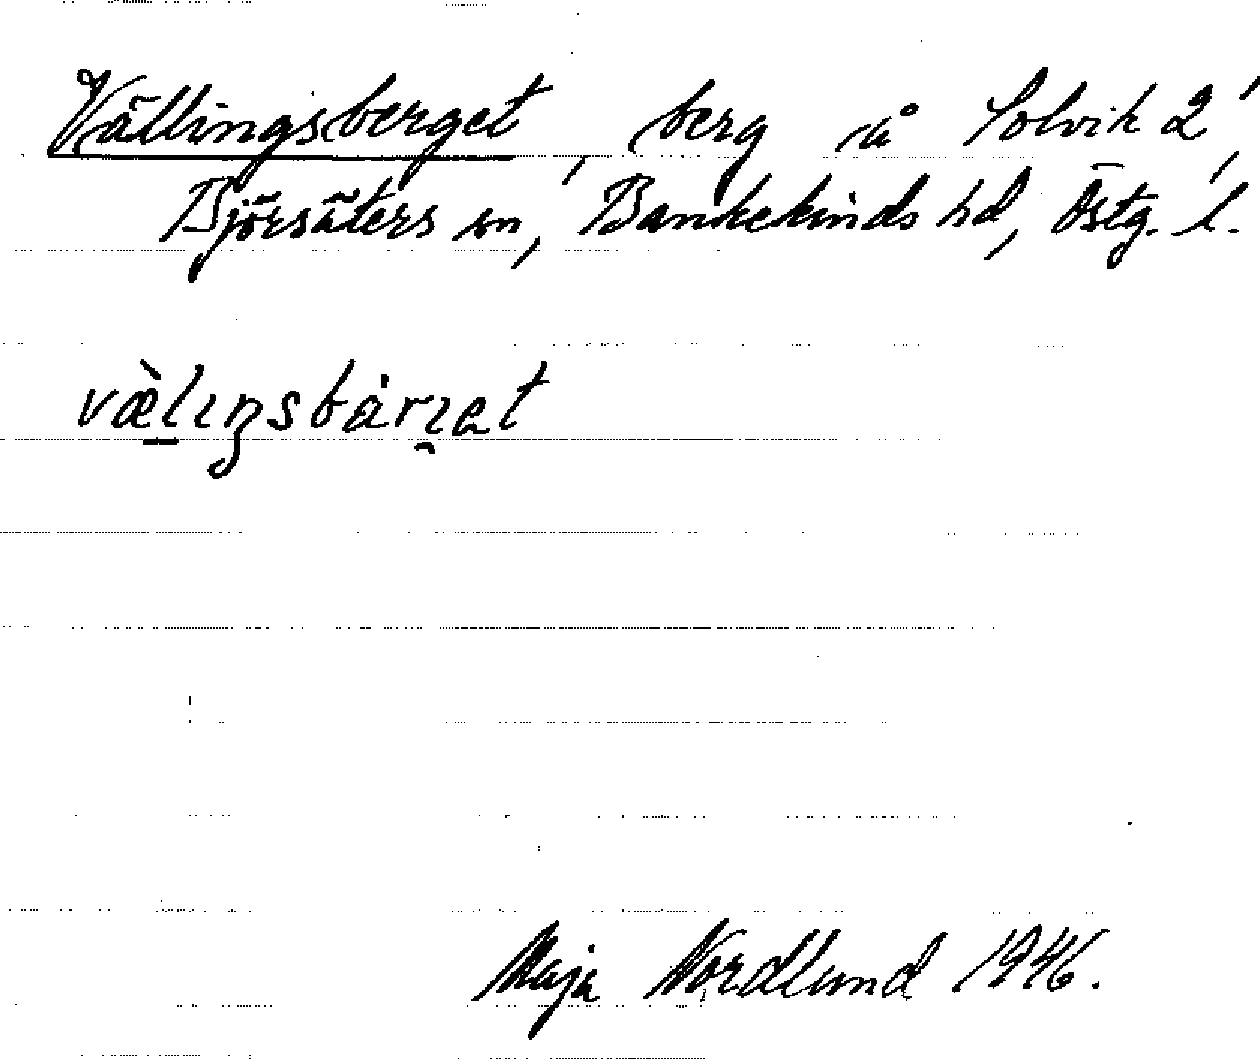 Vällingsberget, berg å Solvik 2¹,
Björsäters sn, Bankekinds hd, Östg. l.
væ̀lıŋsbár̯ıet
Maja Nordlund 1946.